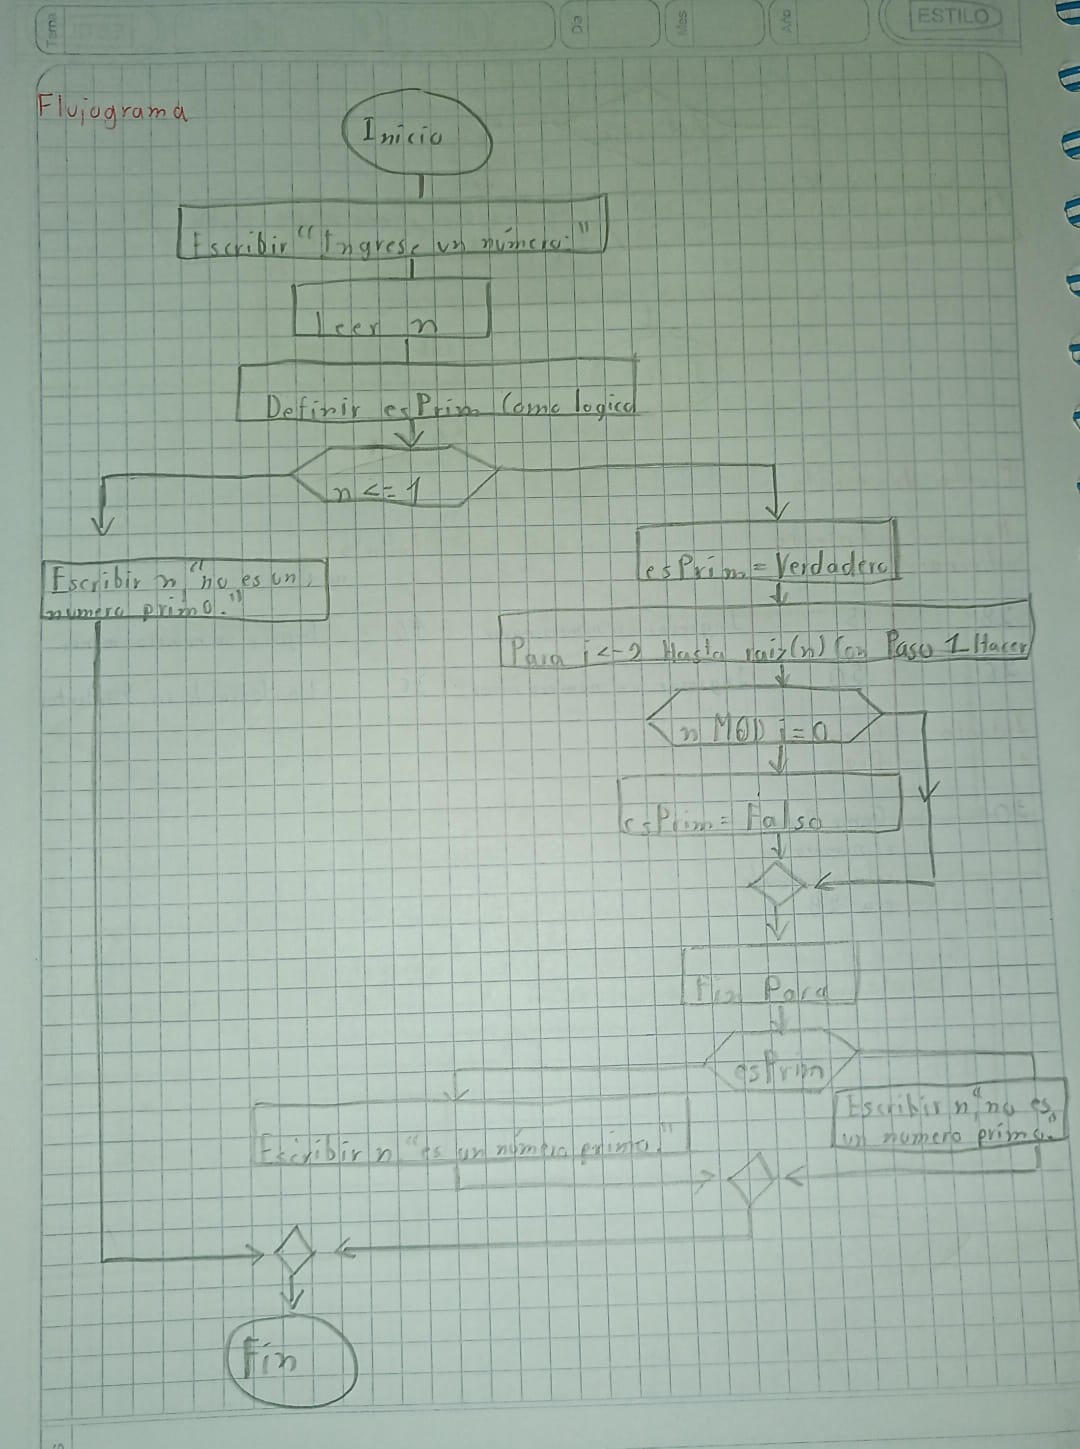 Tema
Dia
Mes
Año
ESTILO
Flujograma
Inicio
Escribir "Ingrese un número:"
Leer n
Definir esPrim Como logico
n <= 1
esPrim = Verdadero
Escribir n "no es un
numero primo."
Para i <- 2 Hasta raiz(n) Con Paso 1 Hacer
n MOD i = 0
esPrim = Falso
Fin Para
esPrim
Escribir n "no es
un numero primo."
Escribir n "es un número primo."
Fin